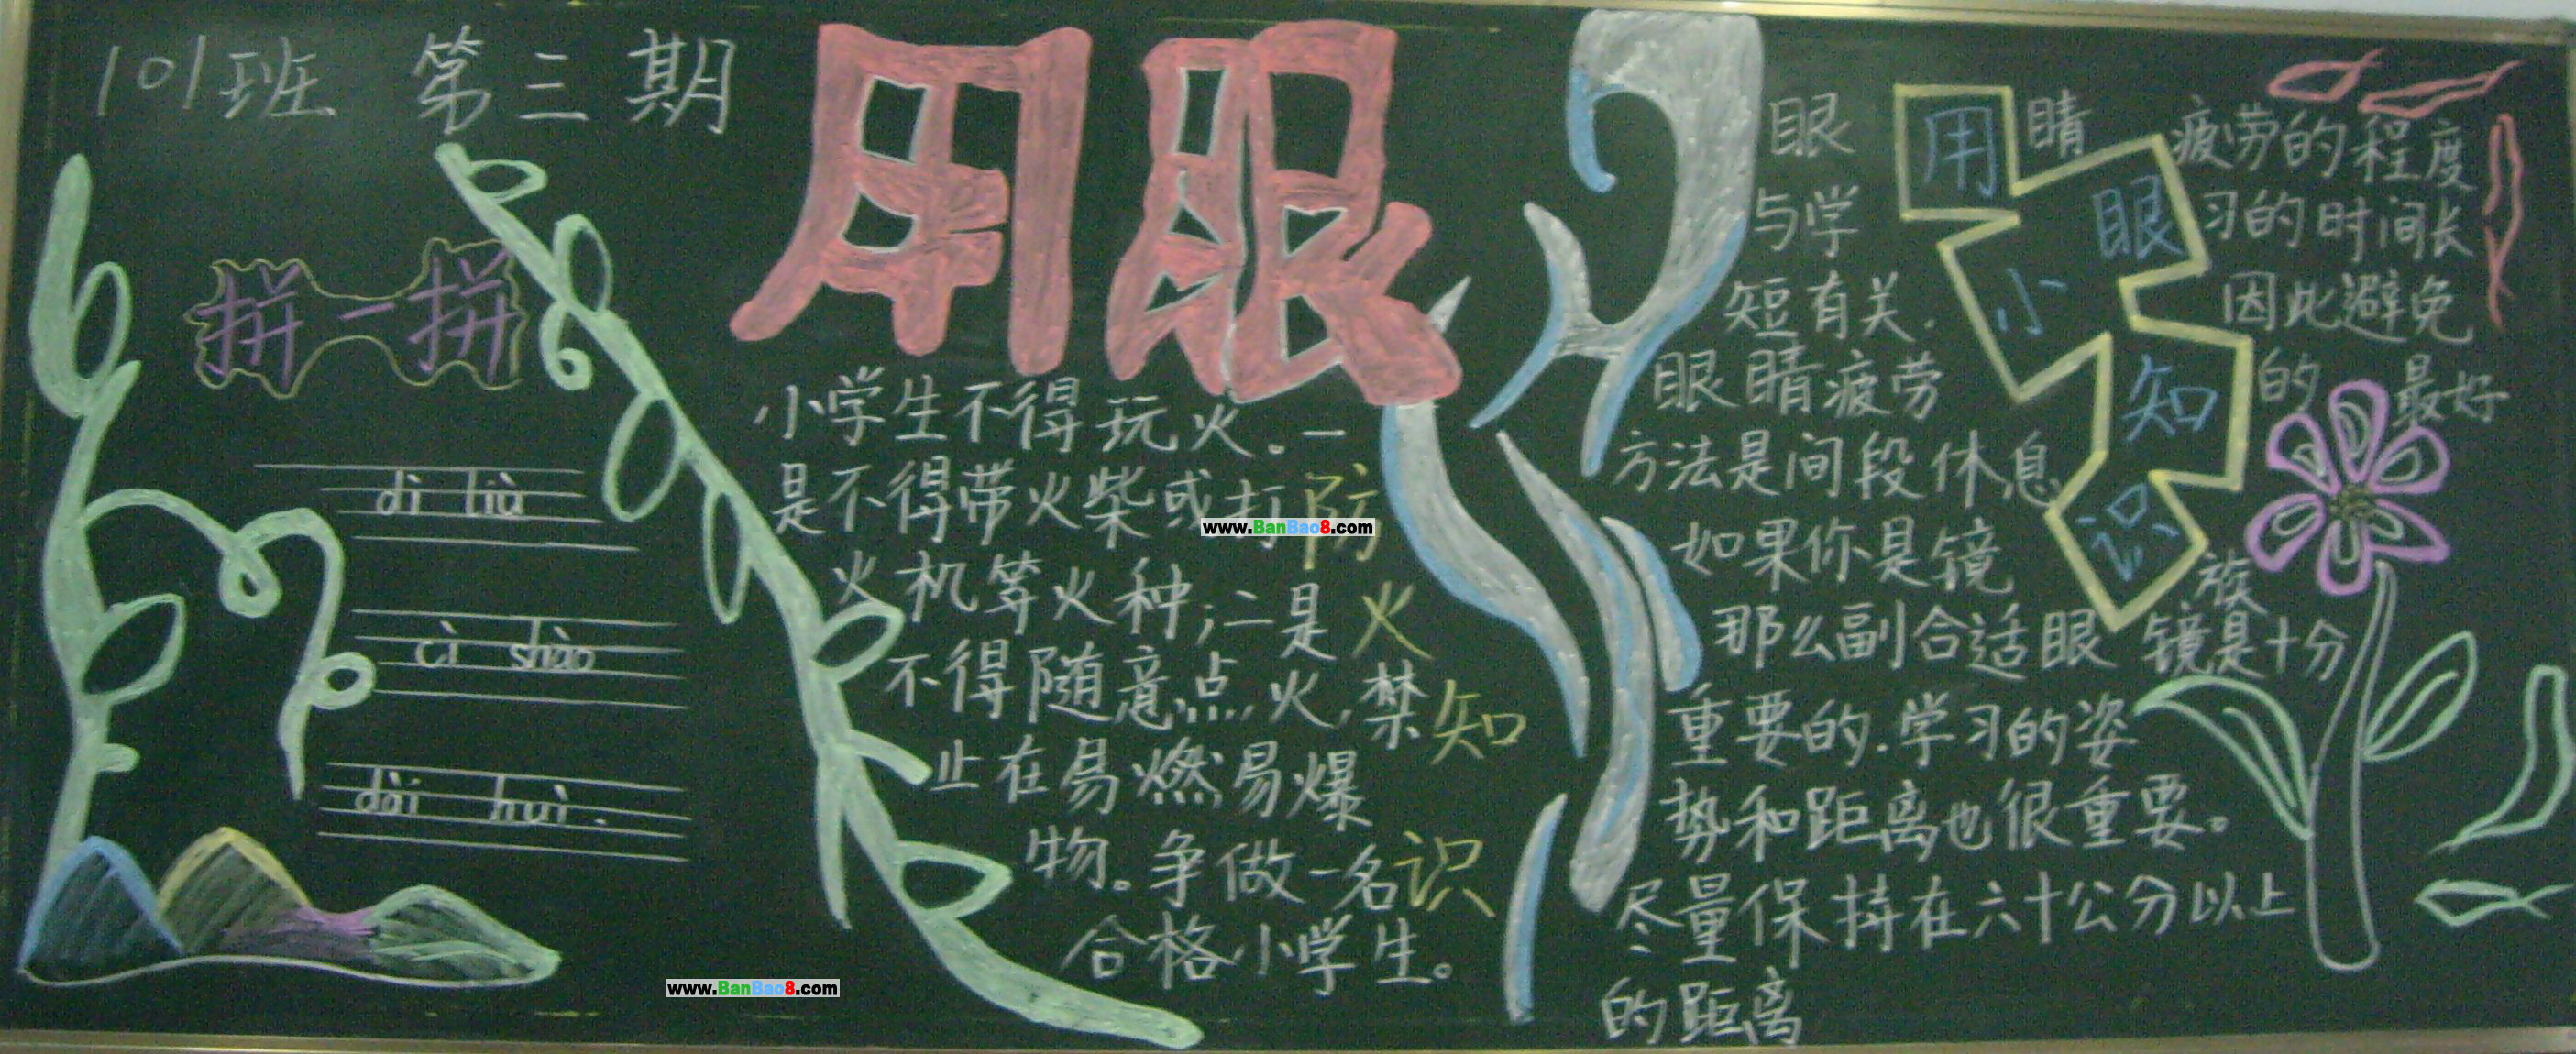 101班 第三期
拼一拼
dì liù
cì shào
dài huì.
用眼
小学生不得玩火。一
是不得带火柴或打
火机等火种;二是
不得随意点火,禁
止在易燃易爆
物。争做一名
合格小学生。
防火知识
用眼小知识
眼睛疲劳的程度
与学习的时间长
短有关.因此避免
眼睛疲劳的最好
方法是间段休息
如果你是镜族
那么副合适眼镜是十分
重要的.学习的姿
势和距离也很重要。
尽量保持在六十公分以上
的距离
www.BanBao8.com
www.BanBao8.com